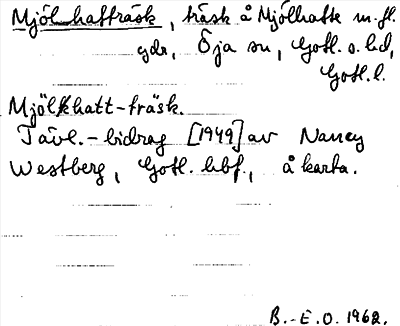 Mjölhatträsk, träsk å Mjölhatte m.fl.
gdr, Öja sn, Gotl. s. hd,
Gotl. l.
Mjölkhatt-träsk.
Tävl.-bidrag [1949] av Nancy
Westberg, Gotl. hbf., å karta.
B.-E.O. 1962.